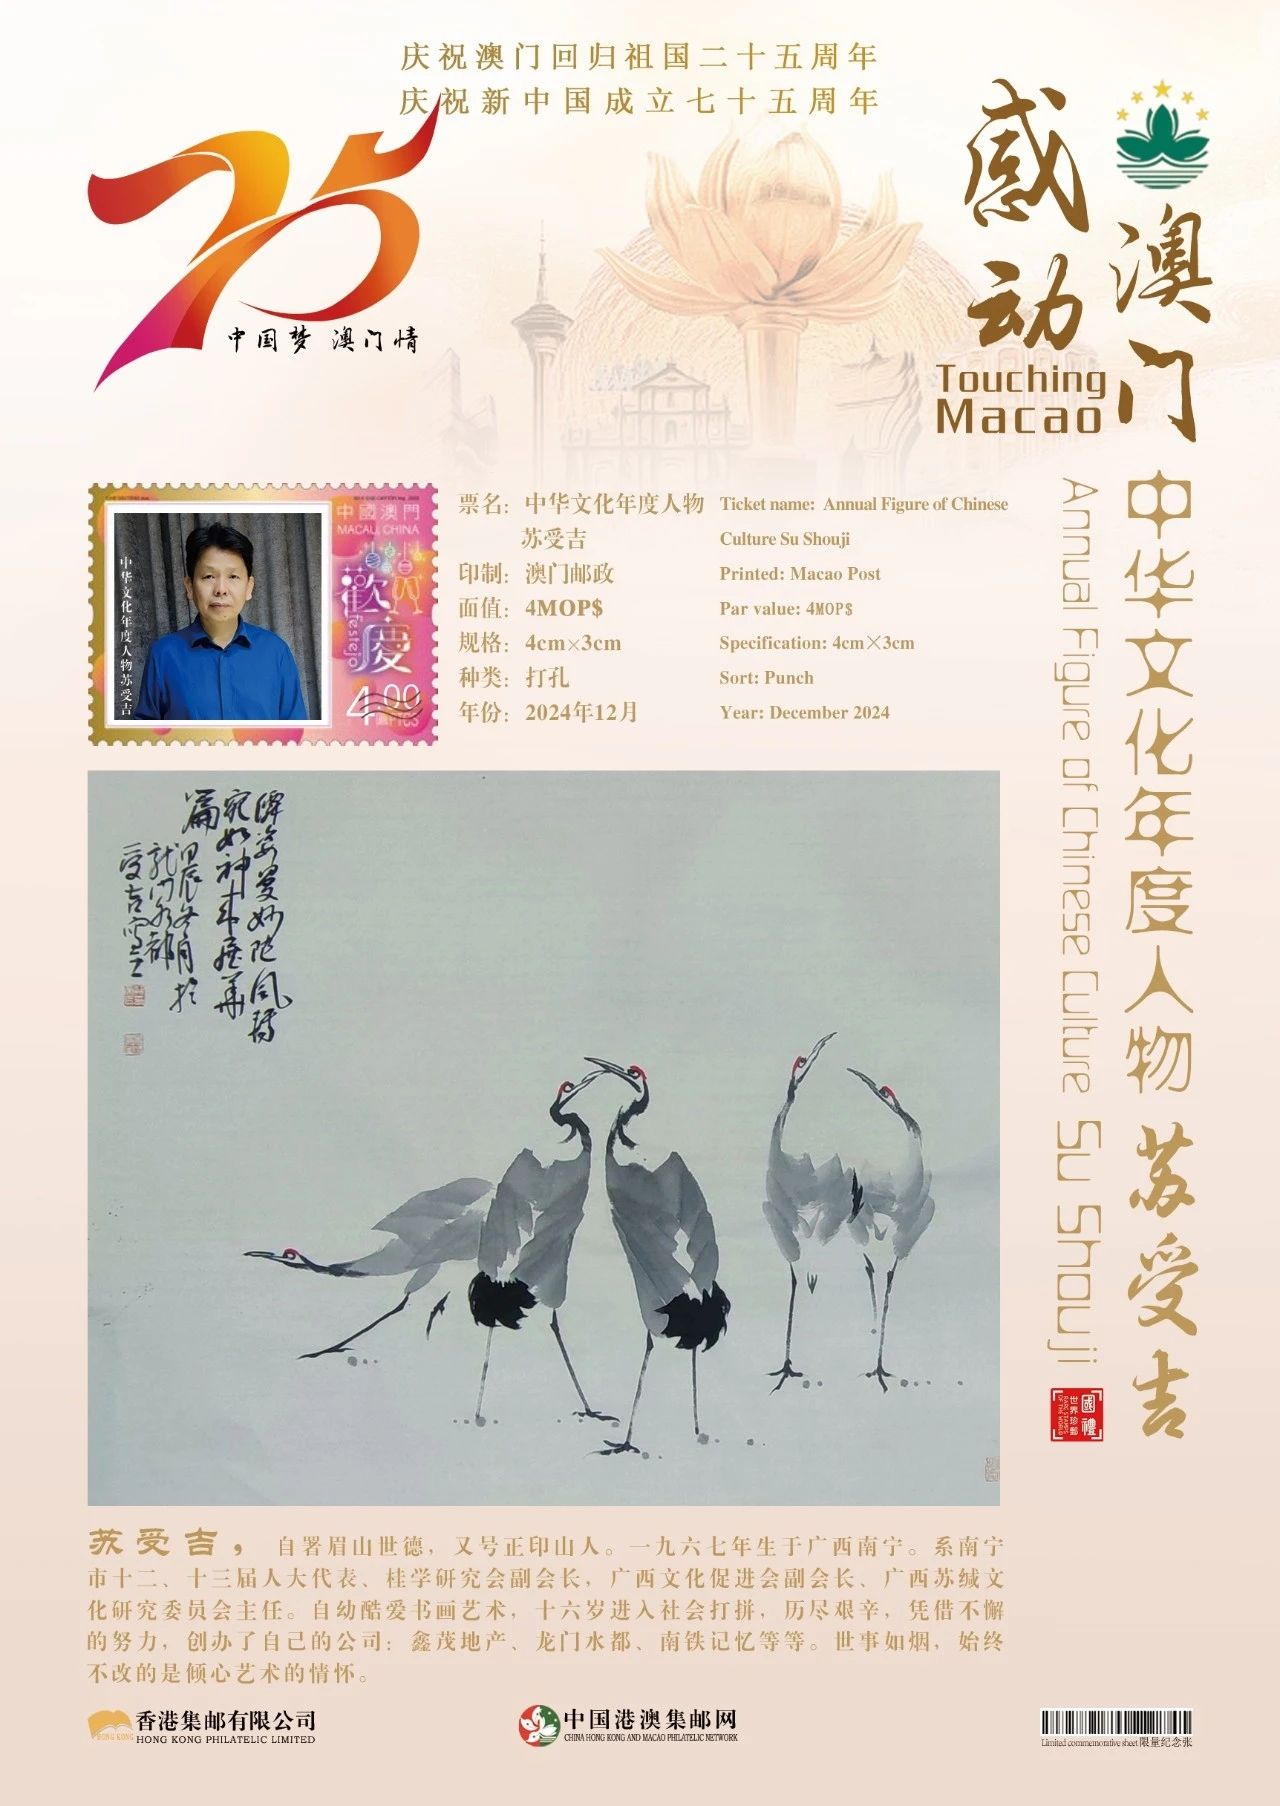 庆祝澳门回归祖国二十五周年
庆祝新中国成立七十五周年
75
中国梦 澳门情
感动
澳门
Touching
Macao
中國澳門
MACAU, CHINA
歡慶
festejo
4.00
PTCS
中华文化年度人物苏受吉
票名：中华文化年度人物
苏受吉
印制：澳门邮政
面值：4MOP$
规格：4cm×3cm
种类：打孔
年份：2024年12月
Ticket name: Annual Figure of Chinese
Culture Su Shouji
Printed: Macao Post
Par value: 4MOP$
Specification: 4cm×3cm
Sort: Punch
Year: December 2024
中华文化年度人物 苏受吉
Annual Figure of Chinese Culture Su Shouji
國禮
世界珍邮
RARE STAMPS
OF THE WORLD
宛如神来展华
篇 甲辰冬月於
龙门水都
受吉写之
苏受吉，自署眉山世德，又号正印山人。一九六七年生于广西南宁。系南宁
市十二、十三届人大代表、桂学研究会副会长，广西文化促进会副会长、广西苏缄文
化研究委员会主任。自幼酷爱书画艺术，十六岁进入社会打拼，历尽艰辛，凭借不懈
的努力，创办了自己的公司：鑫茂地产、龙门水都、南铁记忆等等。世事如烟，始终
不改的是倾心艺术的情怀。
HONG KONG
香港集邮有限公司
HONG KONG PHILATELIC LIMITED
中国港澳集邮网
CHINA HONG KONG AND MACAO PHILATELIC NETWORK
Limited commemorative sheet 限量纪念张